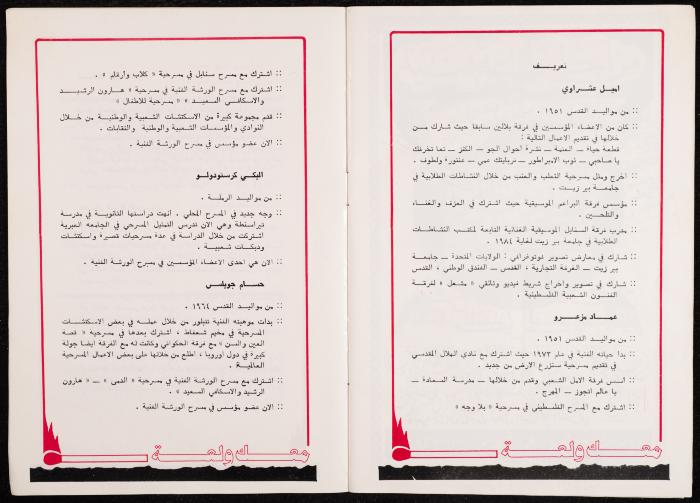 تعريف
اميل عشراوي
:: من مواليد القدس ١٩٥١ .
:: كان من الاعضاء المؤسسين في فرقة بلالين سابقا حيث شارك من
خلالها في تقديم الاعمال التالية :
قطعة حياة ــ العتمة ــ نشرة احوال الجو ــ الكنز ــ تعا تخرفك
يا صاحبي ــ ثوب الامبراطور ــ نربايتك عمي ــ عنتورة ولطوف .
:: اخرج ومثل مسرحية الثعلب والعنب من خلال النشاطات الطلابية في
جامعة بير زيت .
:: مؤسس فرقة البراعم الموسيقية حيث اشترك في العزف والغناء
والتلحين .
:: مدرب فرقة السنابل الموسيقية الغنائية التابعة لمكتب النشاطات
الطلابية في جامعة بير زيت لغاية ١٩٨٤ .
:: شارك في معارض تصوير فوتوغرافي : الولايات المتحدة ــ جامعة
بير زيت ــ الغرفة التجارية ، القدس ــ الفندق الوطني ، القدس
:: شارك في تصوير واخراج شريط فيديو وثائقي « مشعل » لفرقة
الفنون الشعبية الفلسطينية .
عماد مزعرو
:: من مواليد القدس ١٩٥١ .
:: بدأ حياته الفنية في عام ١٩٧٣ حيث اشترك مع نادي الهلال المقدسي
في تقديم مسرحية ستزرع الارض من جديد .
:: اسس فرقة الامل الشعبي وقدم من خلالها ــ مدرسة السعادة ــ
يا عالم اتجوز ــ المهرج .
:: اشترك مع المسرح الفلسطيني في مسرحية « بلا وجه »
معك ولعة
:: اشترك مع مسرح سنابل في مسرحية « كلاب وأرقام » .
:: اشترك مع مسرح الورشة الفنية في مسرحية « هارون الرشيد
والاسكافي السعيد » « مسرحية للاطفال »
:: قدم مجموعة كبيرة من الاسكتشات الشعبية والوطنية من خلال
النوادي والمؤسسات الشعبية والوطنية والنقابات .
:: الان عضو مؤسس في مسرح الورشة الفنية .
اليكي كرستودولو
:: من مواليد الرملة .
:: وجه جديد في المسرح المحلي . انهت دراستها الثانوية في مدرسة
تيراسنطة وهي الان تدرس التمثيل المسرحي في الجامعه العبرية
اشتركت من خلال الدراسة في عدة مسرحيات قصيرة واسكتشات
ودبكات شعبية .
:: الان هي احدى الاعضاء المؤسسين في مسرح الورشة الفنية .
حسام جويلس
:: من مواليد القدس ١٩٦٤ .
:: بدأت موهبته الفنية تتبلور من خلال عمله في بعض الاسكتشات
المسرحية في مخيم شعفاط ، اشترك بعدها في مسرحية « قصة
العين والسن » مع فرقة الحكواتي وكانت له مع الفرقة ايضا جولة
كبيرة في دول اوروبا ، اطلع من خلالها على بعض الاعمال المسرحية
العالمية .
:: اشترك مع مسرح الورشة الفنية في مسرحية « الدمى ــ « هارون
الرشيد والاسكافي السعيد » .
:: الان عضو مؤسس في مسرح الورشة الفنية .
معك ولعة